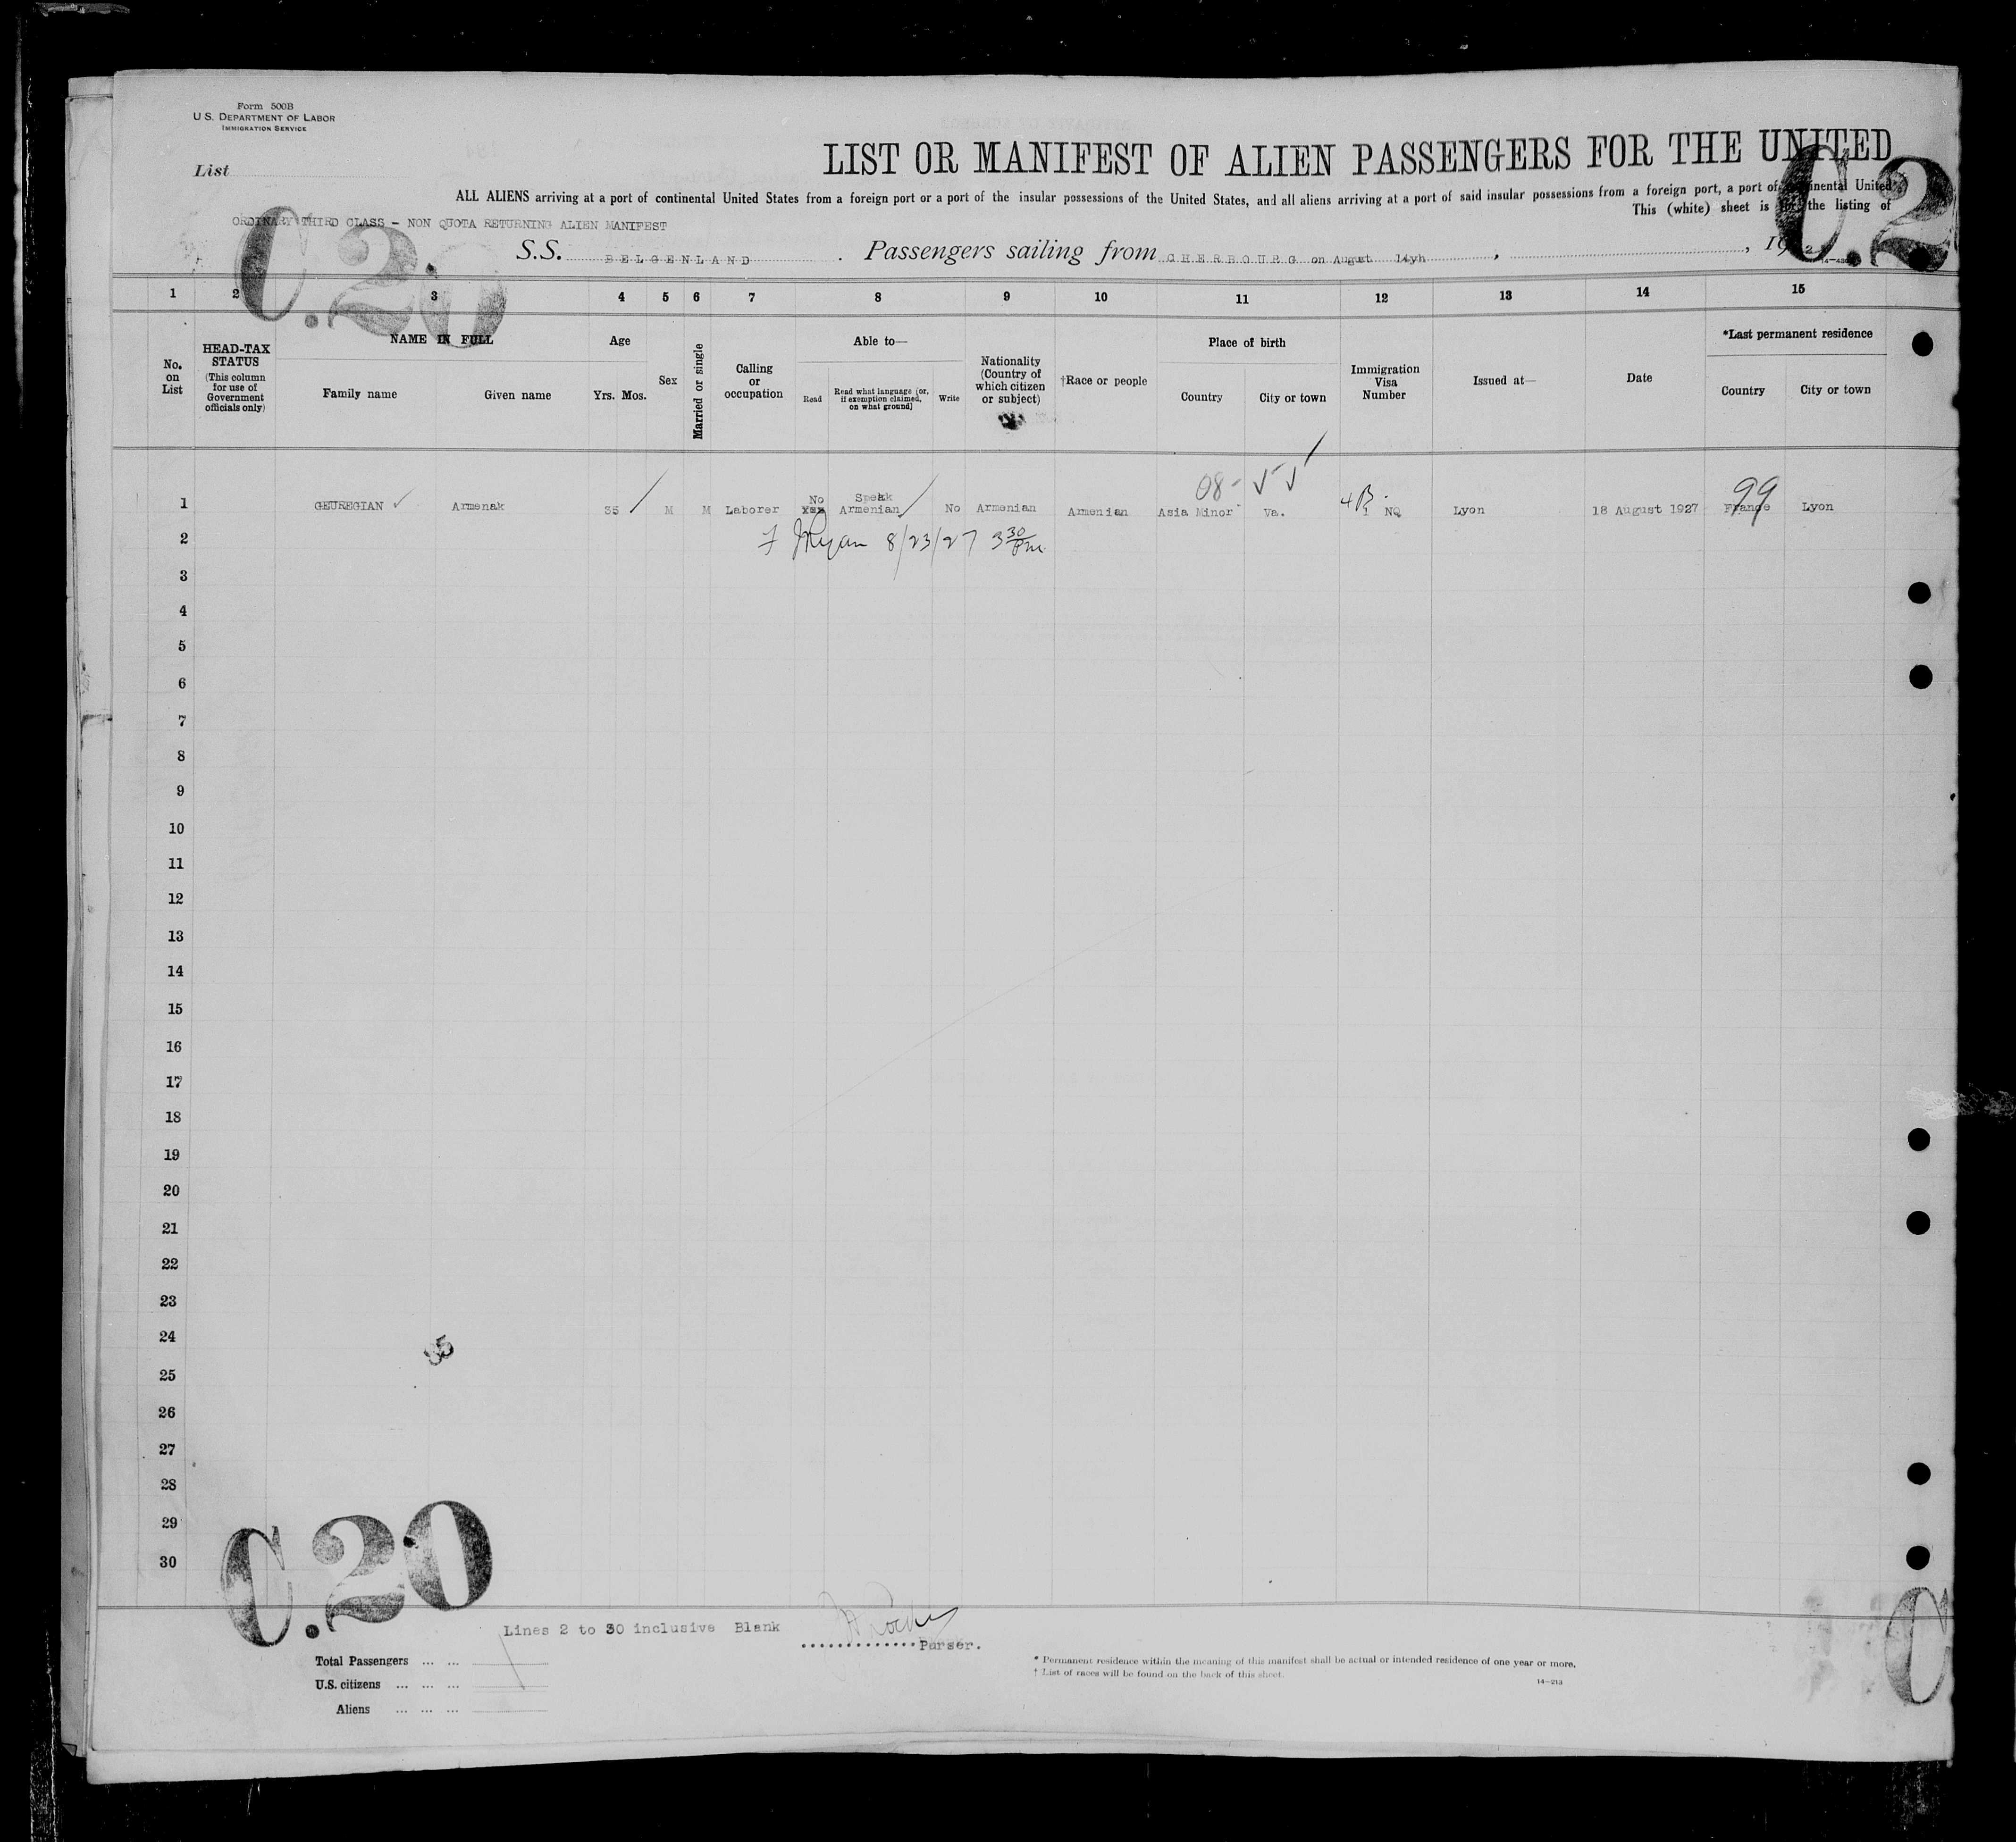 Form 500B
U.S. DEPARTMENT OF LABOR
IMMIGRATION SERVICE
List
LIST OR MANIFEST OF ALIEN PASSENGERS FOR THE UNITED
ALL ALIENS arriving at a port of continental United States from a foreign port or a port of the insular possessions of the United States, and all aliens arriving at a port of said insular possessions from a foreign port, a port of continental United
This (white) sheet is for the listing of
ORDINARY THIRD CLASS - NON QUOTA RETURNING ALIEN MANIFEST
C.20
C.2
S.S. BELGENLAND. Passengers sailing from CHERBOURG on August 14yh, , 19
1 2 3 4 5 6 7 8 9 10 11 12 13 14 15
No. on List
HEAD-TAX STATUS (This column for use of Government officials only)
NAME IN FULL
Family name Given name
Age
Yrs. Mos.
Sex
Married or single
Calling or occupation
Able to—
Read
Read what language (or, if exemption claimed, on what ground)
Write
Nationality (Country of which citizen or subject)
†Race or people
Place of birth
Country City or town
Immigration Visa Number
Issued at—
Date
*Last permanent residence
Country City or town
08- 99
No Speak 4B
1 GEUREGIAN Armenak 35 M M Laborer Yes Armenian No Armenian Armenian Asia Minor Va. NQ Lyon 18 August 1927 France Lyon
2 Ryan 8/23/27 3 30 Pm
3
4
5
6
7
8
9
10
11
12
13
14
15
16
17
18
19
20
21
22
23
24
25
26
27
28
29
30
C.20
C
Lines 2 to 30 inclusive Blank
.............Purser.
Total Passengers ... ...
U.S. citizens ... ... ...
Aliens ... ... ...
* Permanent residence within the meaning of this manifest shall be actual or intended residence of one year or more.
† List of races will be found on the back of this sheet.
14—213